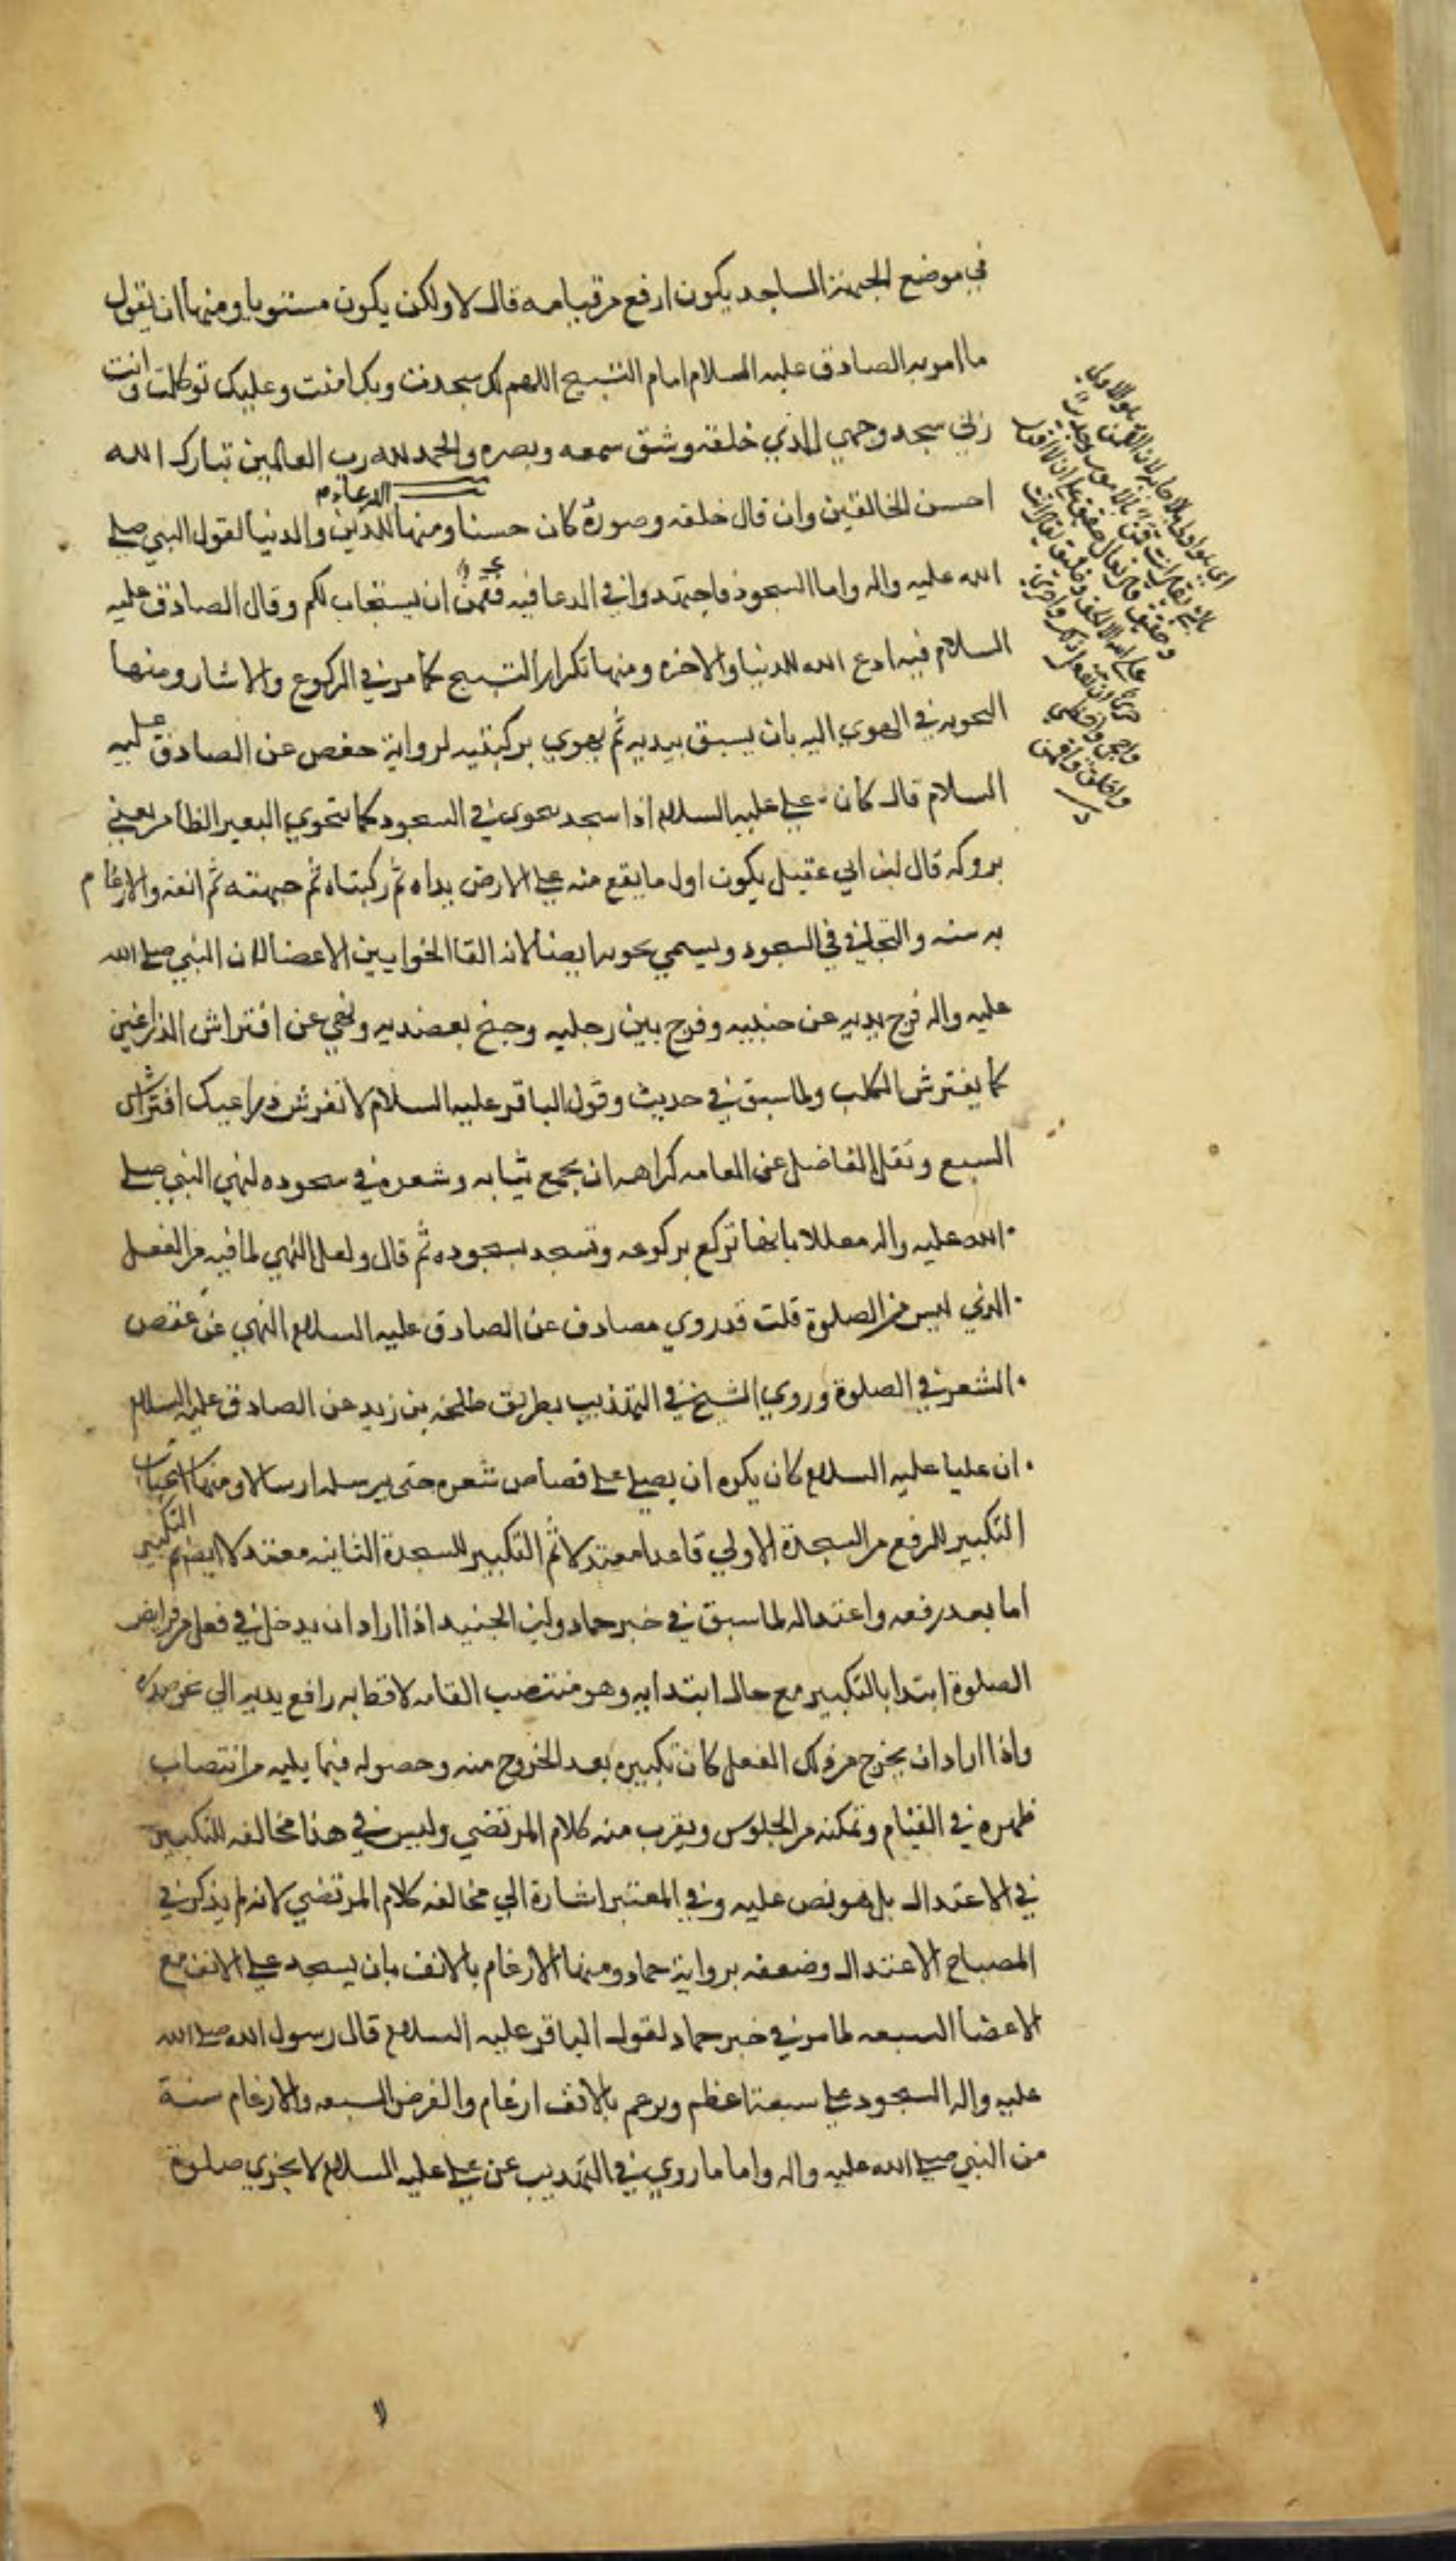 في موضع الجبهة الساجد يكون ارفع من قيامه قال لا ولكن يكون مستويا ومنها ان يقول
ما امر به الصادق عليه السلام امام التسبيح اللهم لك سجدت وبك امنت وعليك توكلت وانت
ربي سجد وجهي للذي خلقه وشق سمعه وبصره والحمد لله رب العالمين تبارك الله
احسن الخالقين وان قال خلقه وصوره كان حسنا ومنها الدعاء للدين والدنيا لقول النبي صلى
الله عليه واله واما السجود فاجتهدوا في الدعا فيه فقمن ان يستجاب لكم وقال الصادق عليه
السلام فيه ادع الله للدنيا والاخره ومنها تكرار التسبيح كما مر في الركوع والايثار ومنها
التخويه في الهوي اليه بان يسبق بيديه ثم يهوي بركبتيه لرواية حفص عن الصادق عليه
السلام قال كان علي عليه السلام اذا سجد يتخوى في السجود كما يتخوي البعير الظامر يعني
بروكه قال ابن ابي عقيل يكون اول ما يقع منه على الارض يداه ثم ركبتاه ثم جبهته ثم انفه والارغام
به سنه والتجافي في السجود ويسمي تخويه ايضا لانه القا الخوا بين الاعضا لان النبي صلى الله
عليه واله فرج يديه عن جنبيه وفرج بين رجليه وجنح بعضديه ونهي عن افتراش الذراعين
كما يفترش الكلب ولما سبق في حديث وقول الباقر عليه السلام لا تفرش ذراعيك افتراش
السبع ونقل الفاضل عن العامه كراهه ان يجمع ثيابه وشعره في سجوده لنهي النبي صلى
الله عليه واله معللا بانها تركع بركوعه وتسجد بسجوده ثم قال ولعل النهي لما فيه من الفعل
الذي ليس من الصلوة قلت قد روي مصادف عن الصادق عليه السلام النهي عن عقص
الشعر في الصلوة وروي الشيخ في التهذيب بطريق طلحه بن زيد عن الصادق عليه السلام
ان عليا عليه السلام كان يكره ان يصلي على قصاص شعره حتى يرسله ارسالا ومنها استحباب
التكبير للرفع من السجدة الاولي قاعدا معتدلا ثم التكبير للسجدة الثانيه معتدلا ايضا ثم التكبير
اما بعد رفعه واعتداله لما سبق في خبر حماد وابن الجنيد اذا اراد ان يدخل في فعل من فرايض
الصلوة ابتدا بالتكبير مع حال ابتدايه وهو منتصب القامه لافظا به رافع يديه الي نحو صدره
واذا اراد ان يخرج من ذلك الفعل كان تكبيره بعد الخروج منه وحصوله فيما يليه من انتصاب
ظهره في القيام وتمكنه من الجلوس ويقرب منه كلام المرتضي وليس في هذا مخالفه للتكبير
في الاعتدال بل هو نص عليه وفي المعتبر اشارة الي مخالفه كلام المرتضي لانه لم يذكر في
المصباح الاعتدال وضعفه برواية حماد ومنها الارغام بالانف بان يسجد على الانف مع
الاعضا السبعه لما مر في خبر حماد لقول الباقر عليه السلام قال رسول الله صلى الله
عليه واله السجود على سبعة اعظم ويرغم بالانف ارغام والفرض السبعه والارغام سنة
من النبي صلى الله عليه واله واما ما روي في التهذيب عن علي عليه السلام لا يجزي صلوة
لا